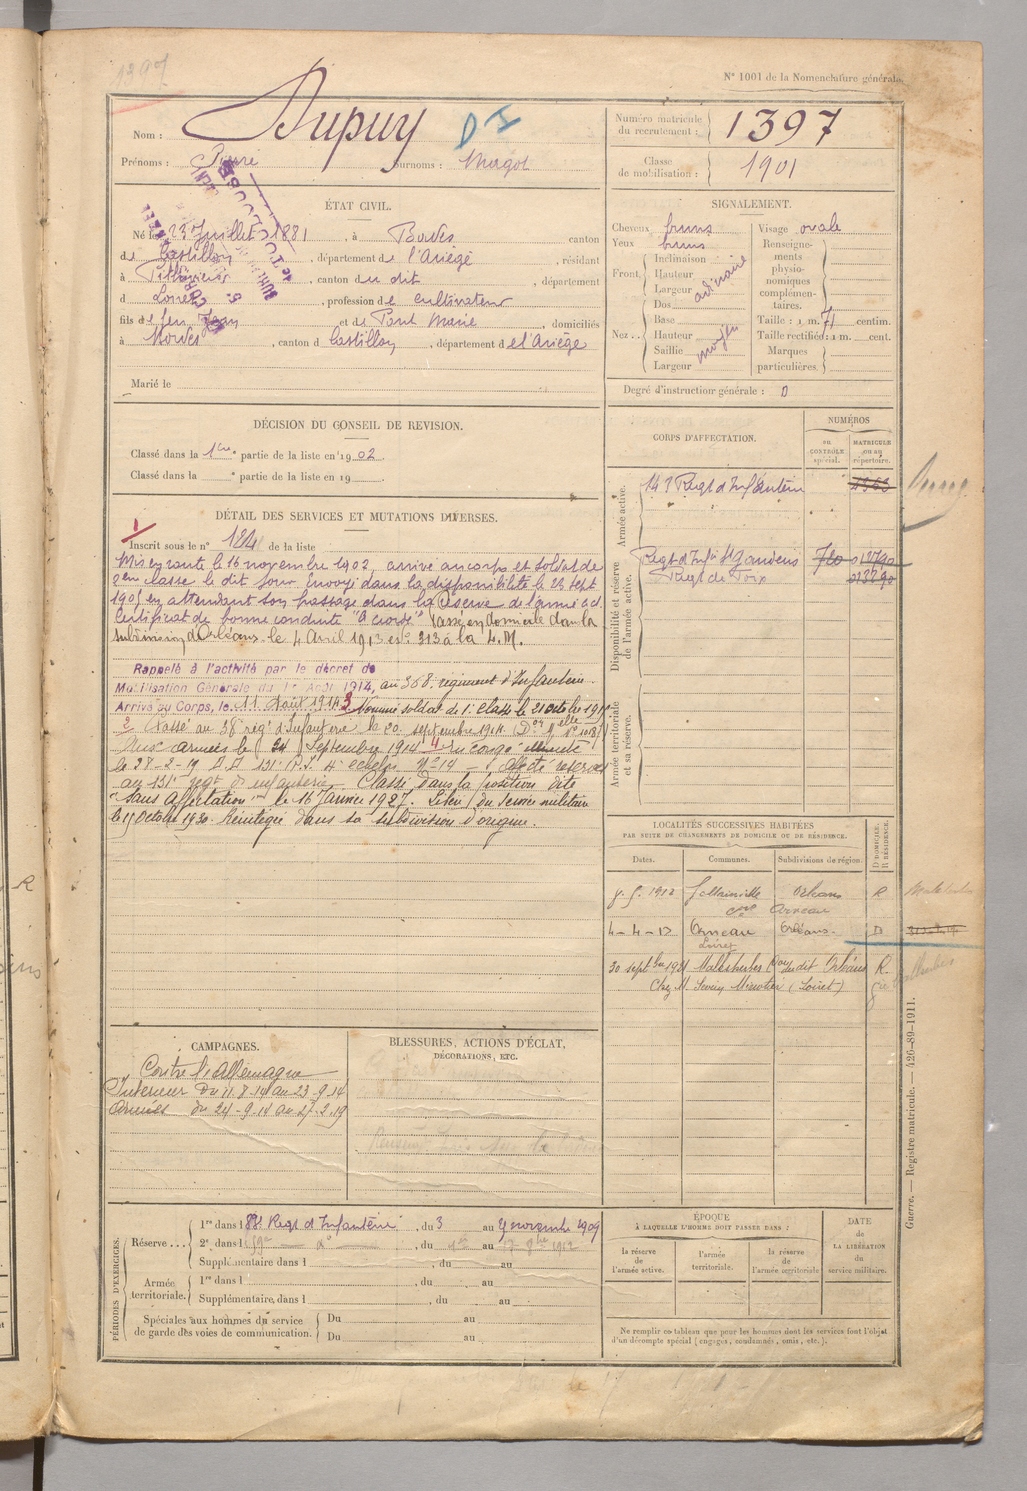 N° 1001 de la Nomenclature générale.
Nom : Dupuy
Prénoms : Pierre Surnoms : Margot
Numéro matricule du recrutement : 1397
Classe de mobilisation : 1901
ÉTAT CIVIL.
Né le 23 Juillet 1881, à Bordes canton
de Castillon, département de l'Ariège, résidant
à Pithiviers, canton du dit, département
d Loiret, profession de cultivateur
fils de feu Jean et de Pont Marie, domiciliés
à Bordes, canton d Castillon, département de l'Ariège
Marié le
SIGNALEMENT.
Cheveux bruns
Yeux bruns
Front. Inclinaison
Hauteur
Largeur
ordinaire
Nez.. Dos
Base
Hauteur
Saillie
Largeur
moyen
Visage ovale
Renseignements physionomiques complémentaires.
Taille : 1 m. 71 centim.
Taille rectifiée : 1 m. cent.
Marques particulières.
Degré d'instruction générale : 0
DÉCISION DU CONSEIL DE REVISION.
Classé dans la 1ère partie de la liste en 1902.
Classé dans la e partie de la liste en 19
CORPS D'AFFECTATION.
NUMÉROS
au CONTRÔLE spécial.
MATRICULE ou au répertoire.
Armée active.
Régt d'Infanterie
Disponibilité et réserve de l'armée active.
Régt d'Infie St Gaudens
Régt de Foix
Armée territoriale et sa réserve.
DÉTAIL DES SERVICES ET MUTATIONS DIVERSES.
1
Inscrit sous le n° 124 de la liste
Mis en route le 16 novembre 1902, arrivé au corps et soldat de
2ème classe le dit jour. Envoyé dans la disponibilité le 23 sept
1905 en attendant son passage dans la réserve de l'armée act.
Certificat de bonne conduite "Accordé" Passé en domicile dans la
subdivision d'Orléans le 4 Avril 1913 es n° 313 à la L.M.
Rappelé à l'activité par le décret de
Mobilisation Générale du 1er Août 1914, au 358e régiment d'Infanterie.
Arrivé au Corps, le 11 Août 1914. 3 Nommé soldat de 1e classe le 21 octobre 191
2 Passé au 38e rég' d'Infanterie le 20 septembre 1914
Aux armées le 24 Septembre 1914 4 En congé illimité
le 28-2-19 131e R.I. 4e échelon N° 14 - Affecté réserve
au 131e régt d'infanterie. Classé dans la position dite
"sans affectation" le 16 Janvier 1927. Libéré du service militaire
le 15 Octobre 1930. Réintégré dans sa subdivision d'origine.
LOCALITÉS SUCCESSIVES HABITÉES
PAR SUITE DE CHANGEMENTS DE DOMICILE OU DE RÉSIDENCE.
Dates.
Communes.
Subdivisions de région.
D. DOMICILE. R. RÉSIDENCE.
1912 Orléans R
4-4-13 Loiret Orléans D
30 septbre 1921 Malesherbes Con du dit Orléans R.
Chez M. (Loiret)
CAMPAGNES.
Contre l'Allemagne
Intérieur du 11-8-14 au 23-9-14
Armées du 24-9-14 au 27-2-19
BLESSURES, ACTIONS D'ÉCLAT,
DÉCORATIONS, ETC.
PÉRIODES D'EXERCICES.
Réserve... 1re dans l 88e Régt d'Infanterie, du 3 au novembre 1909
2e dans l 59e do, du 1er au 17 1912
Supplémentaire dans l , du au
Armée territoriale. 1re dans l , du au
Supplémentaire, dans l , du au
Spéciales aux hommes du service de garde des voies de communication. Du au
Du au
ÉPOQUE
À LAQUELLE L'HOMME DOIT PASSER DANS :
la réserve de l'armée active.
l'armée territoriale.
la réserve de l'armée territoriale
DATE
de
LA LIBÉRATION
du
service militaire.
Ne remplir ce tableau que pour les hommes dont les services font l'objet
d'un décompte spécial (engagés, condamnés, omis, etc.).
Guerre. — Registre matricule. — 426-89-1911.